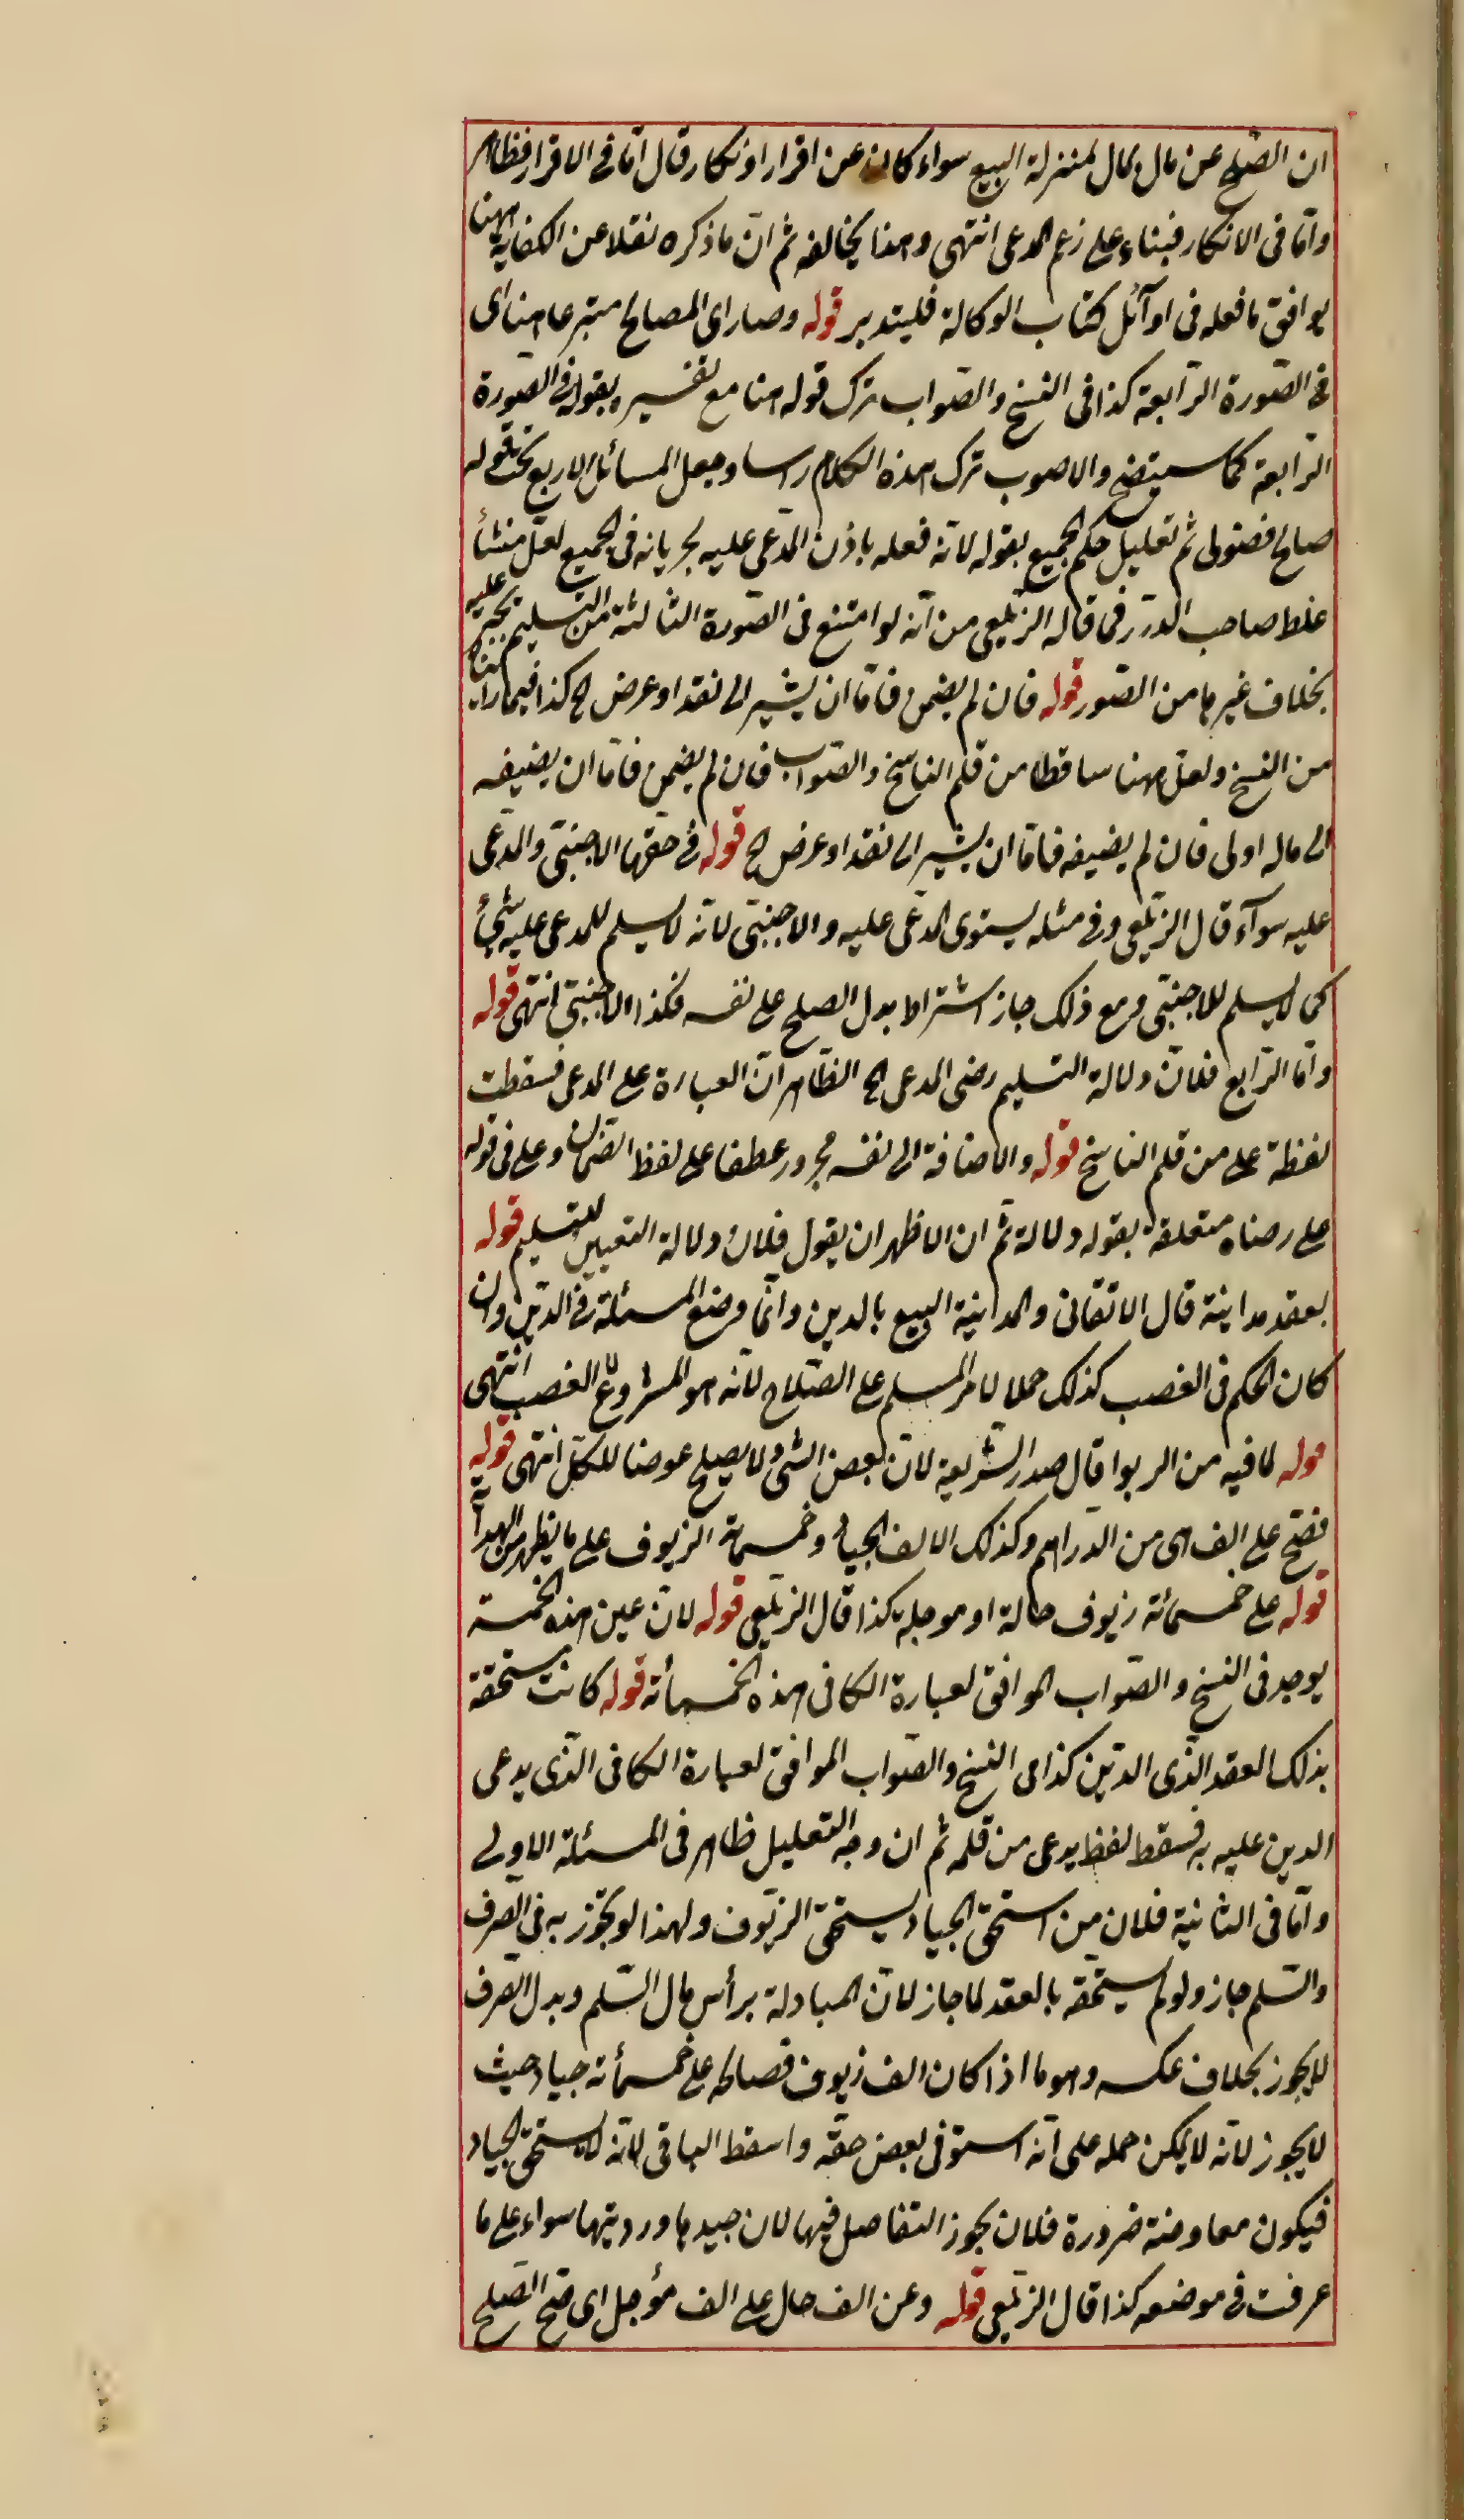 ان الصّلح عن مال بمال بمنزلة البيع سواء كان عن اقرار او انكار قال امّا فى الاقرار فظاهر
وامّا فى الانكار فبناء على زعم المدعى انتهى وهذا يخالفه ثم انّ ما ذكره نقلا عن الكفاية ههنا
يوافق ما فعله فى اوآئل كتاب الوكالة فليتدبر قوله وصار اى المصالح متبرعا هنا اى
فى الصّورة الرّابعة كذا فى النسخ والصّواب ترك قوله هنا مع تفسيره بقوله فى الصّورة
الرّابعة كما سيتضح والاصوب ترك هذه الكلام راسا وجعل المسائل الاربع تحت قوله
صالح فضولى ثم تعليل حكم الجميع بقوله لانّه فعله باذن المدّعى عليه لجريانه فى الجميع لعلّ منشأ
غلط صاحب الدّرر فى قاله الزيلعى من انّه لو امتنع فى الصّورة الثالثة من التسليم يجبر عليه
بخلاف غيرها من الصّور قوله فان لم يضمن فامّا ان يشير الى نقد او عرض الخ كذا فيما راينا
من النسخ ولعلّ ههنا ساقطا من قلم الناسخ والصّواب فان لم يضمن فامّا ان يضيفه
الى ماله اولى فان لم يضيفه فامّا ان يشير الى نقد او عرض الخ قوله فى حقّها الاجنبىّ والمدّعى
عليه سوآء قال الزيلعى وفى مثله يستوى المدّعى عليه والاجنبىّ لانّه لا يسلم للمدعى عليه شئٌ
كما لا يسلم للاجنبىّ ومع ذلك جاز اشتراط بدل الصلح على نفسه فكذا الاجنبىّ انتهى قوله
وامّا الرّابع فلانّ دلالة التسليم رضى المدعى الخ الظّاهر انّ العبارة على المدعى فسقطت
لفظة على من قلم الناسخ قوله والاضافة الى نفسه مجرور عطفا على لفظ الضّمان وعلى فى قوله
على رضاه متعلقة بقوله دلالة ثم ان الاظهر ان يقول فلانّ دلالة التعيين للتسليم قوله
بعقد مداينة قال الاتقانى والمداينة البيع بالدين وانّما وضع المسئلة فى الدّين وان
كان الحكم فى الغصب كذلك حملا لامر المسلم على الصّلاح لانّه هو المشروع لا الغصب انتهى
قوله لما فيه من الربوا قال صدر الشّريعة لانّ بعض الشئ لا يصلح عوضا للكلّ انتهى قوله
فصّح على الف اى من الدّراهم وكذلك الالف الجياد وخمسمائة الزيوف على ما يظهر من الهدآية
قوله على خمسمائة زيوف حالة او موجلة كذا قال الزيلعى قوله لانّ عين هذه الخمسة
يوجد فى النسخ والصّواب الموافق لعبارة الكافى هذه الخمسمأئة قوله كانت مستحقة
بذلك العقد الذّى الدّين كذا فى النسخ والصّواب الموافق لعبارة الكافى الذّى يدعى
الدين عليه به فسقط لفظ يدعى من قلمه ثم ان وجه التعليل ظاهر فى المسئلة الاولى
وامّا فى الثانية فلان من استحقّ الجياد يستحقّ الزيّوف ولهذا لو تجوّز به فى الصّرف
والسّلم جاز ولو لم يستحقّه بالعقد لما جاز لانّ المبادلة برأس مال السّلم وبدل الصّرف
لا يجوز بخلاف عكسه وهو ما اذا كان الف زيوف فصالحه على خمسمأئة جياد حيث
لا يجوز لانّه لا يمكن حمله على انّه استوفى بعض حقّه واسقط الباقى لانّه لا يستحقّ الجياد
فيكون معاوضة ضرورة فلان يجوز التفاضل فيها لان جيدها ورديّها سواء على ما
عرفت فى موضعه كذا قال الزيلعى قوله وعن الف حال على الف مؤجل اى صّح الصّلح